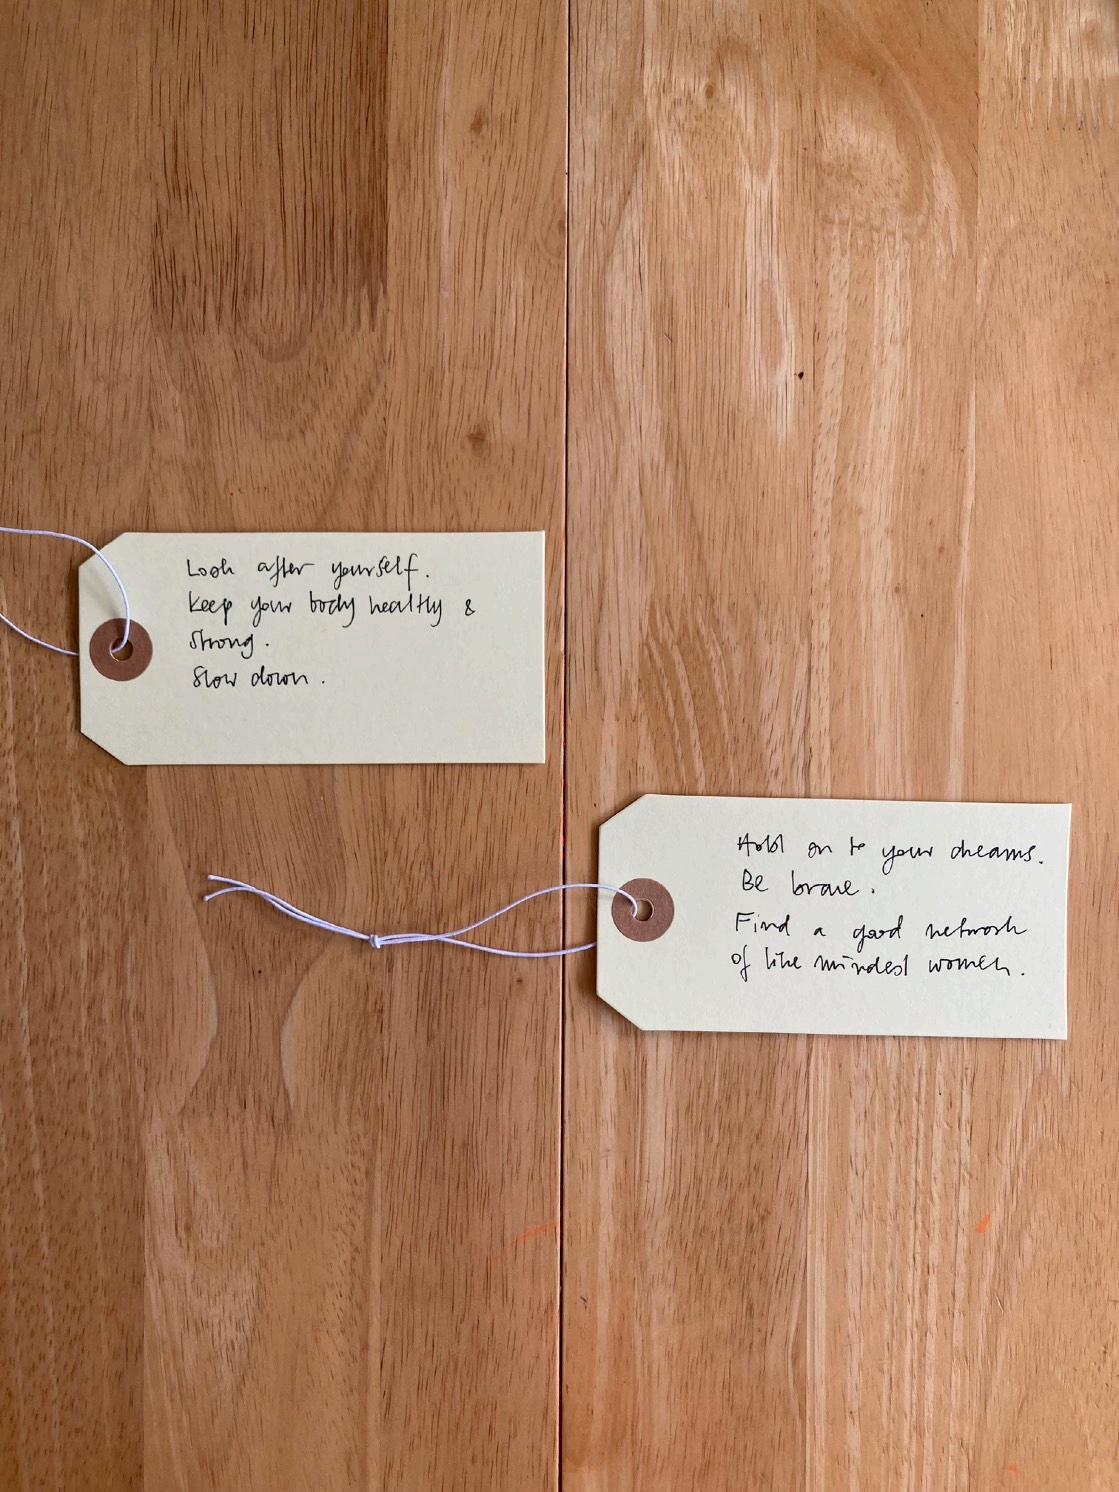 Look after yourself.
Keep your body healthy &
Strong.
Slow down.
Hold on to your dreams.
Be brave.
Find a good network
of like minded women.